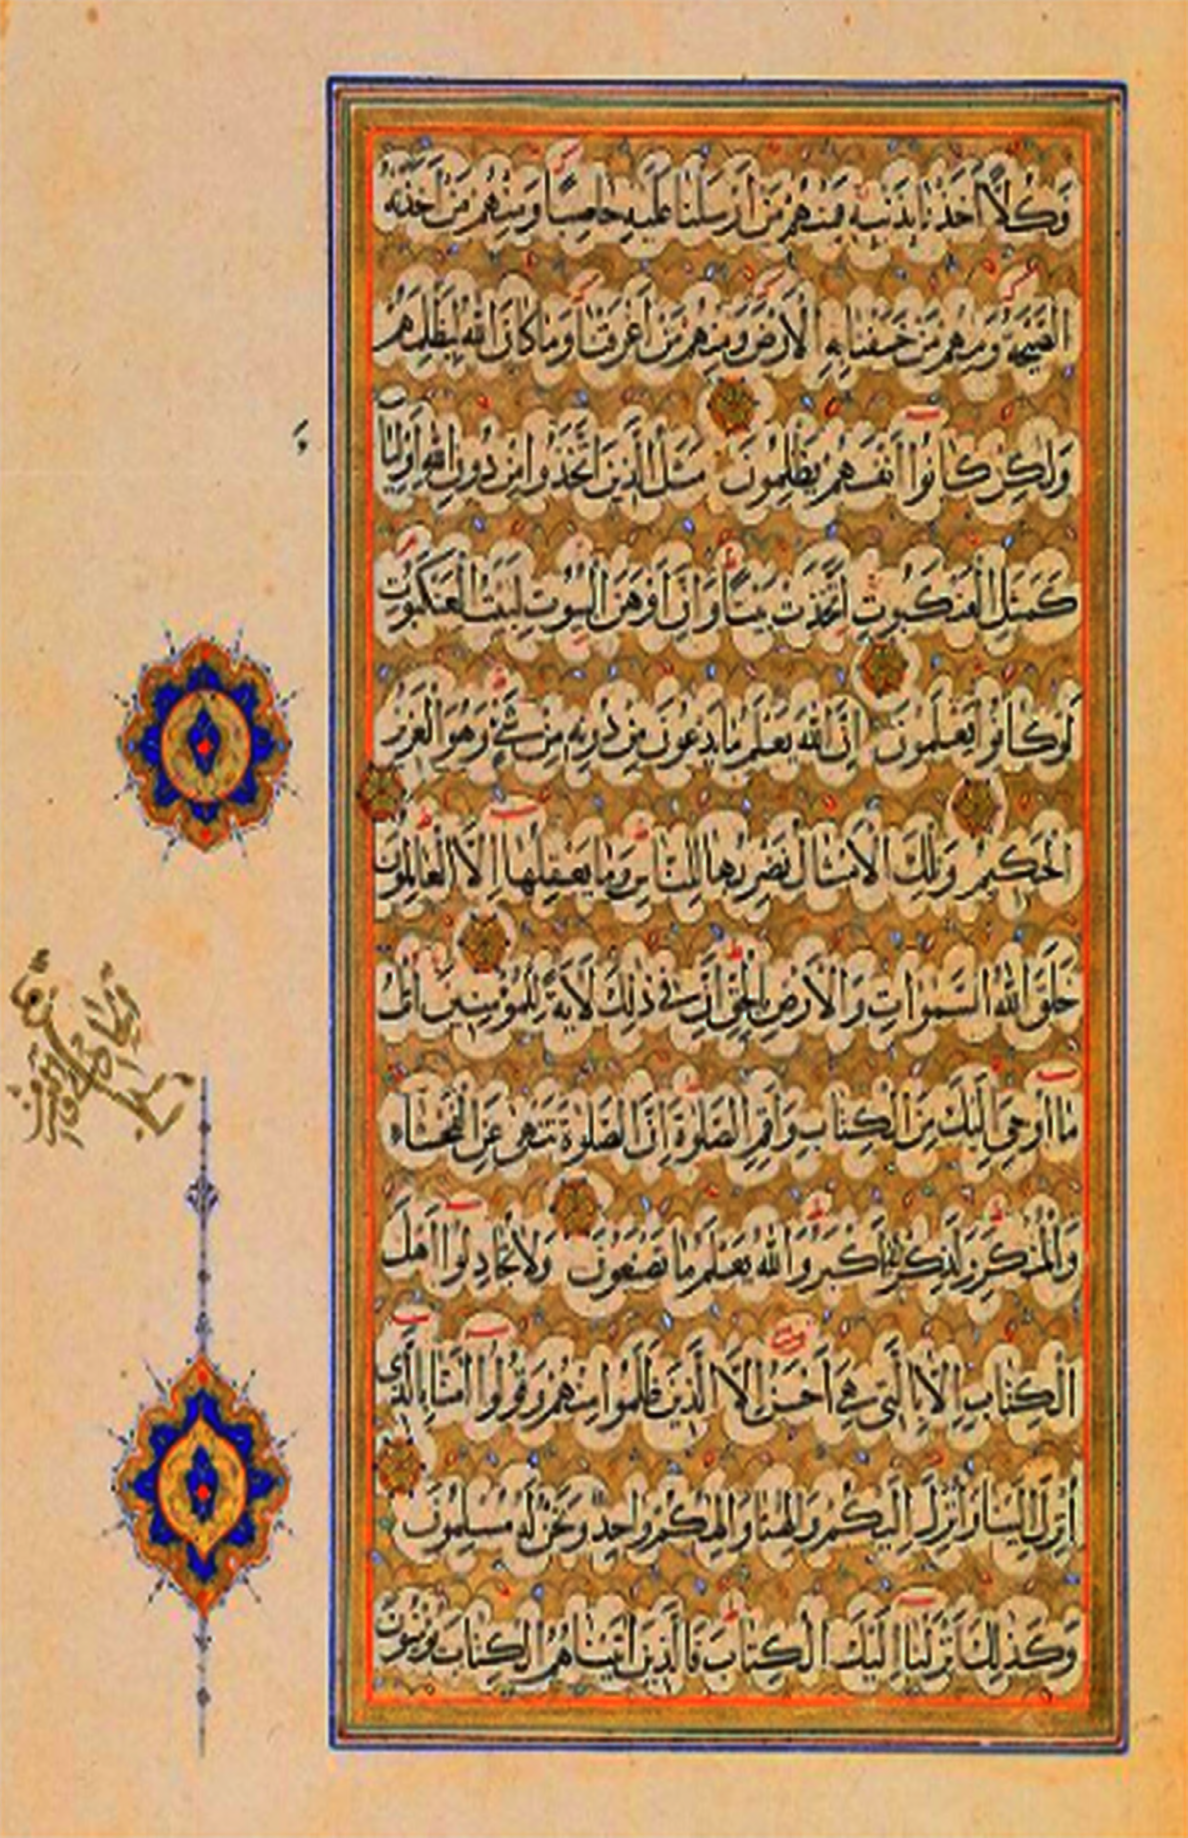 وَكُلًّا اَخَذْنَا بِذَنْبِهِ فَمِنْهُمْ مَنْ اَرْسَلْنَا عَلَيْهِ حَاصِبًا وَمِنْهُمْ مَنْ اَخَذَتْهُ
الصَّيْحَةُ وَمِنْهُمْ مَنْ خَسَفْنَا بِهِ الْاَرْضَ وَمِنْهُمْ مَنْ اَغْرَقْنَا وَمَا كَانَ اللّٰهُ لِيَظْلِمَهُمْ
وَلٰكِنْ كَانُوا اَنْفُسَهُمْ يَظْلِمُونَ مَثَلُ الَّذِينَ اتَّخَذُوا مِنْ دُونِ اللّٰهِ اَوْلِيَاءَ
كَمَثَلِ الْعَنْكَبُوتِ اتَّخَذَتْ بَيْتًا وَاِنَّ اَوْهَنَ الْبُيُوتِ لَبَيْتُ الْعَنْكَبُوتِ
لَوْ كَانُوا يَعْلَمُونَ اِنَّ اللّٰهَ يَعْلَمُ مَا يَدْعُونَ مِنْ دُونِهِ مِنْ شَيْءٍ وَهُوَ الْعَزِيزُ
الْحَكِيمُ وَتِلْكَ الْاَمْثَالُ نَضْرِبُهَا لِلنَّاسِ وَمَا يَعْقِلُهَا اِلَّا الْعَالِمُونَ
خَلَقَ اللّٰهُ السَّمٰوَاتِ وَالْاَرْضَ بِالْحَقِّ اِنَّ فِي ذٰلِكَ لَاٰيَةً لِلْمُؤْمِنِينَ اُتْلُ
مَا اُوحِيَ اِلَيْكَ مِنَ الْكِتَابِ وَاَقِمِ الصَّلٰوةَ اِنَّ الصَّلٰوةَ تَنْهٰى عَنِ الْفَحْشَاءِ
وَالْمُنْكَرِ وَلَذِكْرُ اللّٰهِ اَكْبَرُ وَاللّٰهُ يَعْلَمُ مَا تَصْنَعُونَ وَلَا تُجَادِلُوا اَهْلَ
الْكِتَابِ اِلَّا بِالَّتِي هِيَ اَحْسَنُ اِلَّا الَّذِينَ ظَلَمُوا مِنْهُمْ وَقُولُوا اٰمَنَّا بِالَّذِي
اُنْزِلَ اِلَيْنَا وَاُنْزِلَ اِلَيْكُمْ وَاِلٰهُنَا وَاِلٰهُكُمْ وَاحِدٌ وَنَحْنُ لَهُ مُسْلِمُونَ
وَكَذٰلِكَ اَنْزَلْنَا اِلَيْكَ الْكِتَابَ فَالَّذِينَ اٰتَيْنَاهُمُ الْكِتَابَ يُؤْمِنُونَ